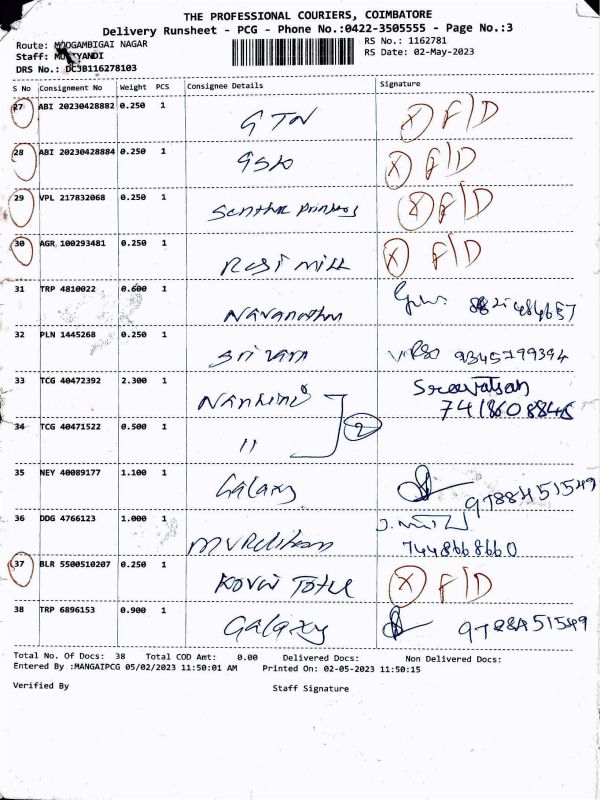 THE PROFESSIONAL COURIERS, COIMBATORE
Delivery Runsheet - PCG - Phone No.:0422-3505555 - Page No.:3
Route: MOOGAMBIGAI NAGAR
RS No.: 1162781
Staff: MUTYANDI
RS Date: 02-May-2023
DRS No.: DCJB116278103
S No Consignment No Weight PCS Consignee Details Signature
27 ABI 20230428882 0.250 1 GTN X F/D
28 ABI 20230428884 0.250 1 X F/D
29 VPL 217832068 0.250 1 X F/D
30 AGR 100293481 0.250 1 Mill X F/D
31 TRP 4810022 0.600 1
32 PLN 1445268 0.250 1 Sri 9345799394
33 TCG 40472392 2.300 1 Nandhini Sreevatsan
7418608848
34 TCG 40471522 0.500 1 " 2
35 NEY 40089177 1.100 1 Galaxy 9788451549
36 DDG 4766123 1.000 1 7448668660
37 BLR 5500510207 0.250 1 Kovai X F/D
38 TRP 6896153 0.900 1 Galaxy 9788451549
Total No. Of Docs: 38 Total COD Amt: 0.00 Delivered Docs: Non Delivered Docs:
Entered By :MANGAIPCG 05/02/2023 11:50:01 AM Printed On: 02-05-2023 11:50:15
Verified By Staff Signature